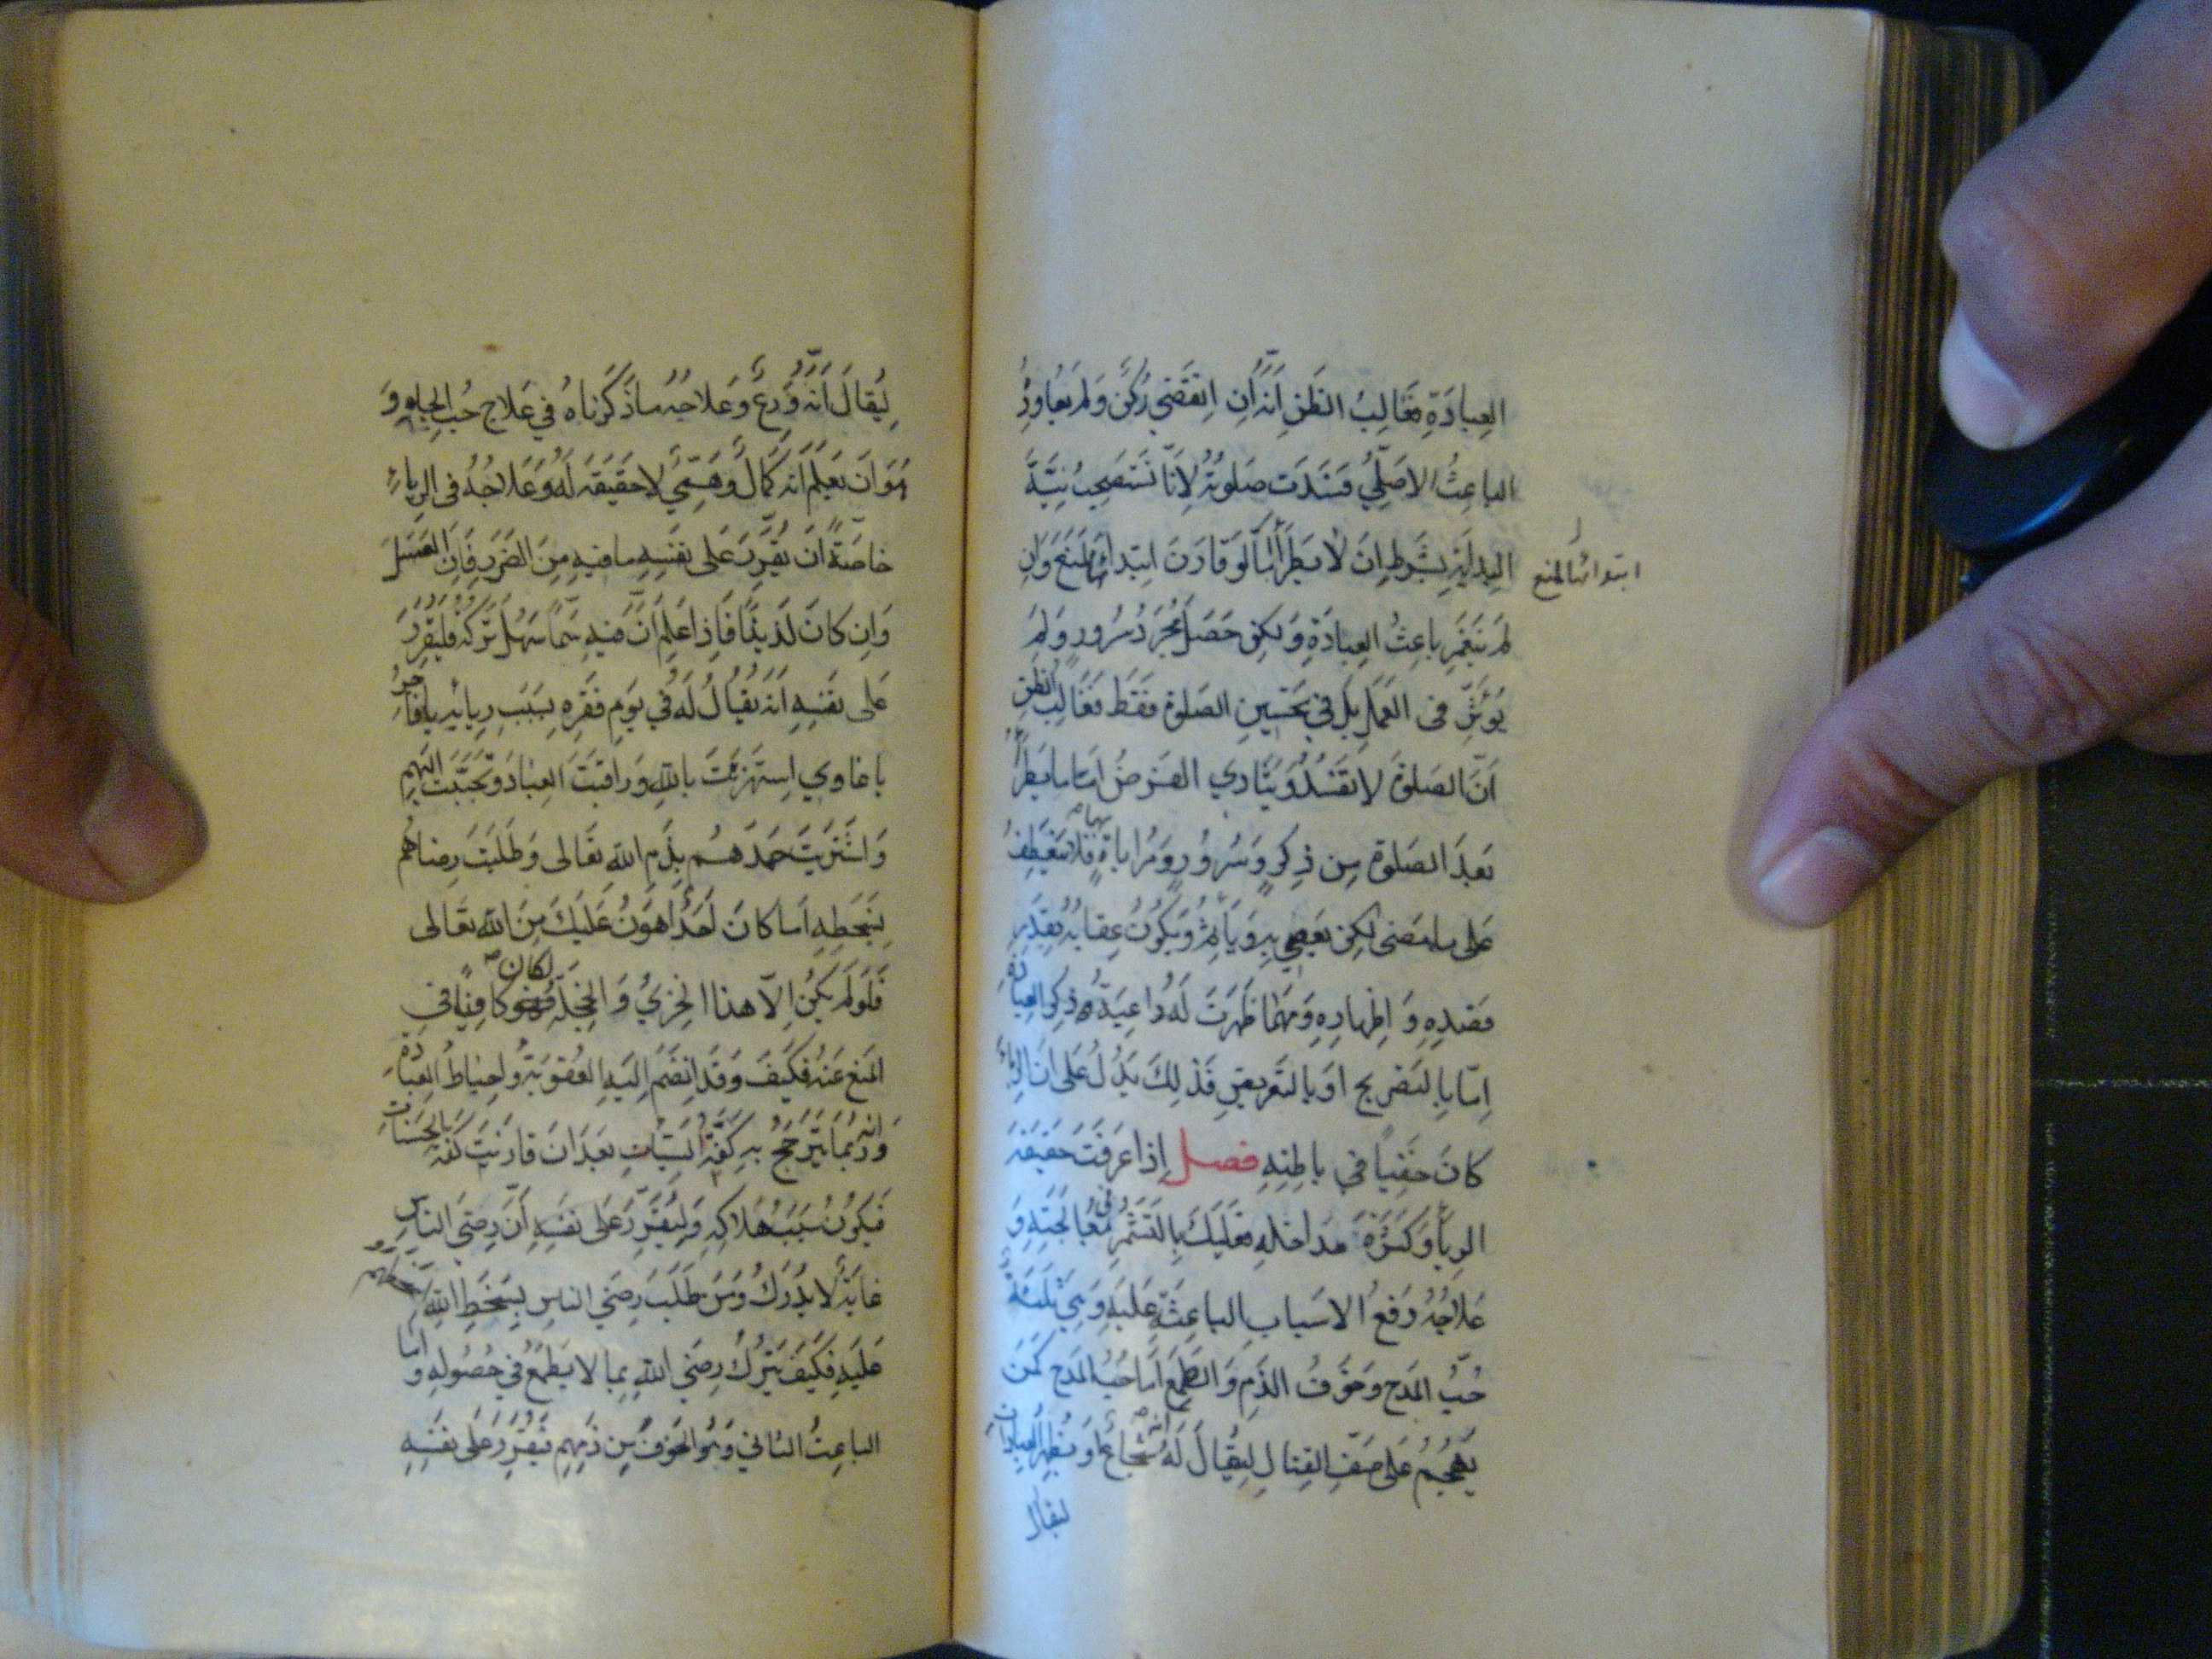 العِبادَةِ فَغَالِبُ الظَنِ اَنَّهُ اِنِ انْقَضَى رُكْنٌ وَلَم يُعاوِدُ
الباعِثُ الاَصْلِيُ فَسَدَت صَلوتُهُ لِاَنّا نَسْتَصْحِبُ نِيَّةَ
البِدايَةِ بِشَرْطِ اِنْ لا يَطْرَأ مَالَو قارَنَ ابْتِداءً لَمَنَعَ وَاِن
ابتداءً المنع
لَم يَنْغَمِر باعِثُ العِبادَةِ وَلكِن حَصَلَ مُجَرَّدُ سُرُورٍ وَلَم
يُؤَثِّر فى العَمَلِ بَل في تَحْسِينِ الصَلوة فَقَطْ فَغَالِبُ الظَنِ
اَنَّ الصَلوةَ لا تَفْسُدُ وَيَتَادي الفَرضُ اَمّا ما يَطْرَأُ
بَعدَ الصَلوة مِن ذِكرٍ وَسُرُورٍ وَمُراياةٍ بها فَلا يَنْعَطِفُ
عَلى ما مَضى لكِن يَعْصِي بِهِ وَيَأْثَمُ وَيَكُونُ عِقابُهُ بِقَدَرِ
قَصْدِهِ وَ اِظْهارِهِ وَمَهْمَا ظَهَرَت لَهُ داعِيَةُ ذِكرِ العِبادَةِ
اِمّا بِالتَصْرِيح اَو بِالتَعْرِيضِ فَذلِكَ يَدُلُّ عَلى اَنَّ الرِياءَ
كانَ خَفِيّاً في باطِنِهِ فصل اِذا عَرَفْتَ حَقيقَةَ
الرِياءِ وَكَثْرَةَ مَداخِلِهِ فَعَلَيْكَ بِالتَشَمُّرِ في مُعالَجَتِهِ وَ
عَلاجُهُ دَفعُ الاَسبابِ الباعِثَةِ عَلَيهِ وَهِيَ ثَلثَةٌ
حُبُّ المَدح وَخَوفُ الذَمِ وَ الطَمَع اَمّا حُبُّ المَدح كَمَن
يَهْجُمُ عَلى صَفِّ القِتالِ لِيُقالَ لَهُ اِنَّهُ شُجاعٌ اَو يُظهِرُ العِباداتِ
ليقال
لِيُقالَ اَنَّهُ وَرِعٌ وَعَلاجُهُ ماذَكَرْناهُ في عَلاج حُبِ الجاهِ وَ
هُوَ اَن يَعْلَمَ اَنَّهُ كَمالٌ وَهْمِيٌ لا حَقيقَةَ لَهُ وَعَلاجُهُ فى الرِياءِ
خاصَّةً اَنْ يُقَرِّرَ عَلى نَفسِهِ ما فيهِ مِنَ الضَرَرِ فَاِنَ العَسَلَ
وَاِن كانَ لَذيذاً فَاِذا عَلِمَ اَنَّ فيهِ سَمّاً سَهُلَ تَرْكُهُ فَليُقَرِّر
عَلى نَفسِهِ اَنَّهُ يُقالُ لَهُ في يَومِ فَقرِهِ بِسَبَبِ رِيائِهِ يا فاجِرُ
يا غاوي اِستَهزَئتَ بِاللهِ وَراقَبْتَ العِبادَ وَتَحَبَّبتَ اِلَيهِم
وَاشتَرَيتَ حَمدَهُم بِذَمِ اللهِ تَعَالى وَطَلَبتَ رِضاهُم
بِسَخَطِهِ اَما كانَ اَحَدٌ اَهوَنُ عَلَيكَ مِنَ اللهِ تَعَالى
فَلَو لَم يَكُنْ اِلاّ هذا الخِزيُ وَ الخَجَلَةُ لكان كافِياً في
المَنعِ عَنهُ فَكَيفَ وَقَد اِنضَمَّ اِلَيهِ العُقوبَةُ وَاحباطُ العِبادَةِ
وَاِنَّهُ رُبَما يَتَرَجَّحُ بِهِ كَفَّةُ السَيِّئاتِ بَعدَ اَنَ قارَنَتْ كَفَّةَ الحَسَناتِ
فَيَكُونُ سَبَبُ هَلاكِهِ وَلِيُقَرِّرَ عَلى نَفسِهِ اَنَّ رِضى الناسِ
غايَةٌ لا تُدرَكُ وَمَن طَلَبَ رِضَى الناسِ بِسَخَطِ اللهِ
عَلَيهِ فَكَيفَ يَترُكُ رِضَى اللهِ بِما لا يَطمَعُ في حُصُولِهِ وَ اَمّا
الباعِثُ الثاني وَهُوَ الخَوفُ مِن ذَمِهِم فَيُقَرِّرُ عَلى نَفسِهِ